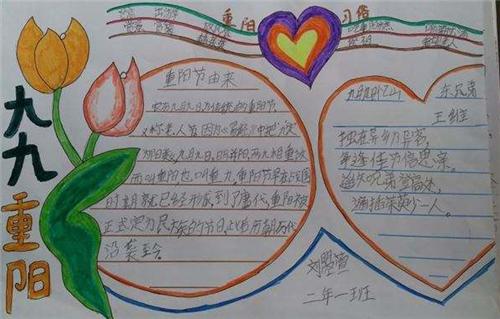 重阳 习俗
九九重阳
重阳节由来
农历九月九日为传统的重阳节
又称老人节因为《易经》中把六定
九月九日,日月并阳,两九相重故
而叫重阳,也叫重九。重阳节早在战国
时期就已经形成到了唐代,重阳被
正式定为民族的节日,此后历朝历代
沿袭至今
九月九日忆山 东兄弟
王维
独在异乡异客,
每逢佳节倍思亲。
遥知兄弟登高处,
遍插茱萸少一人。
二年一班